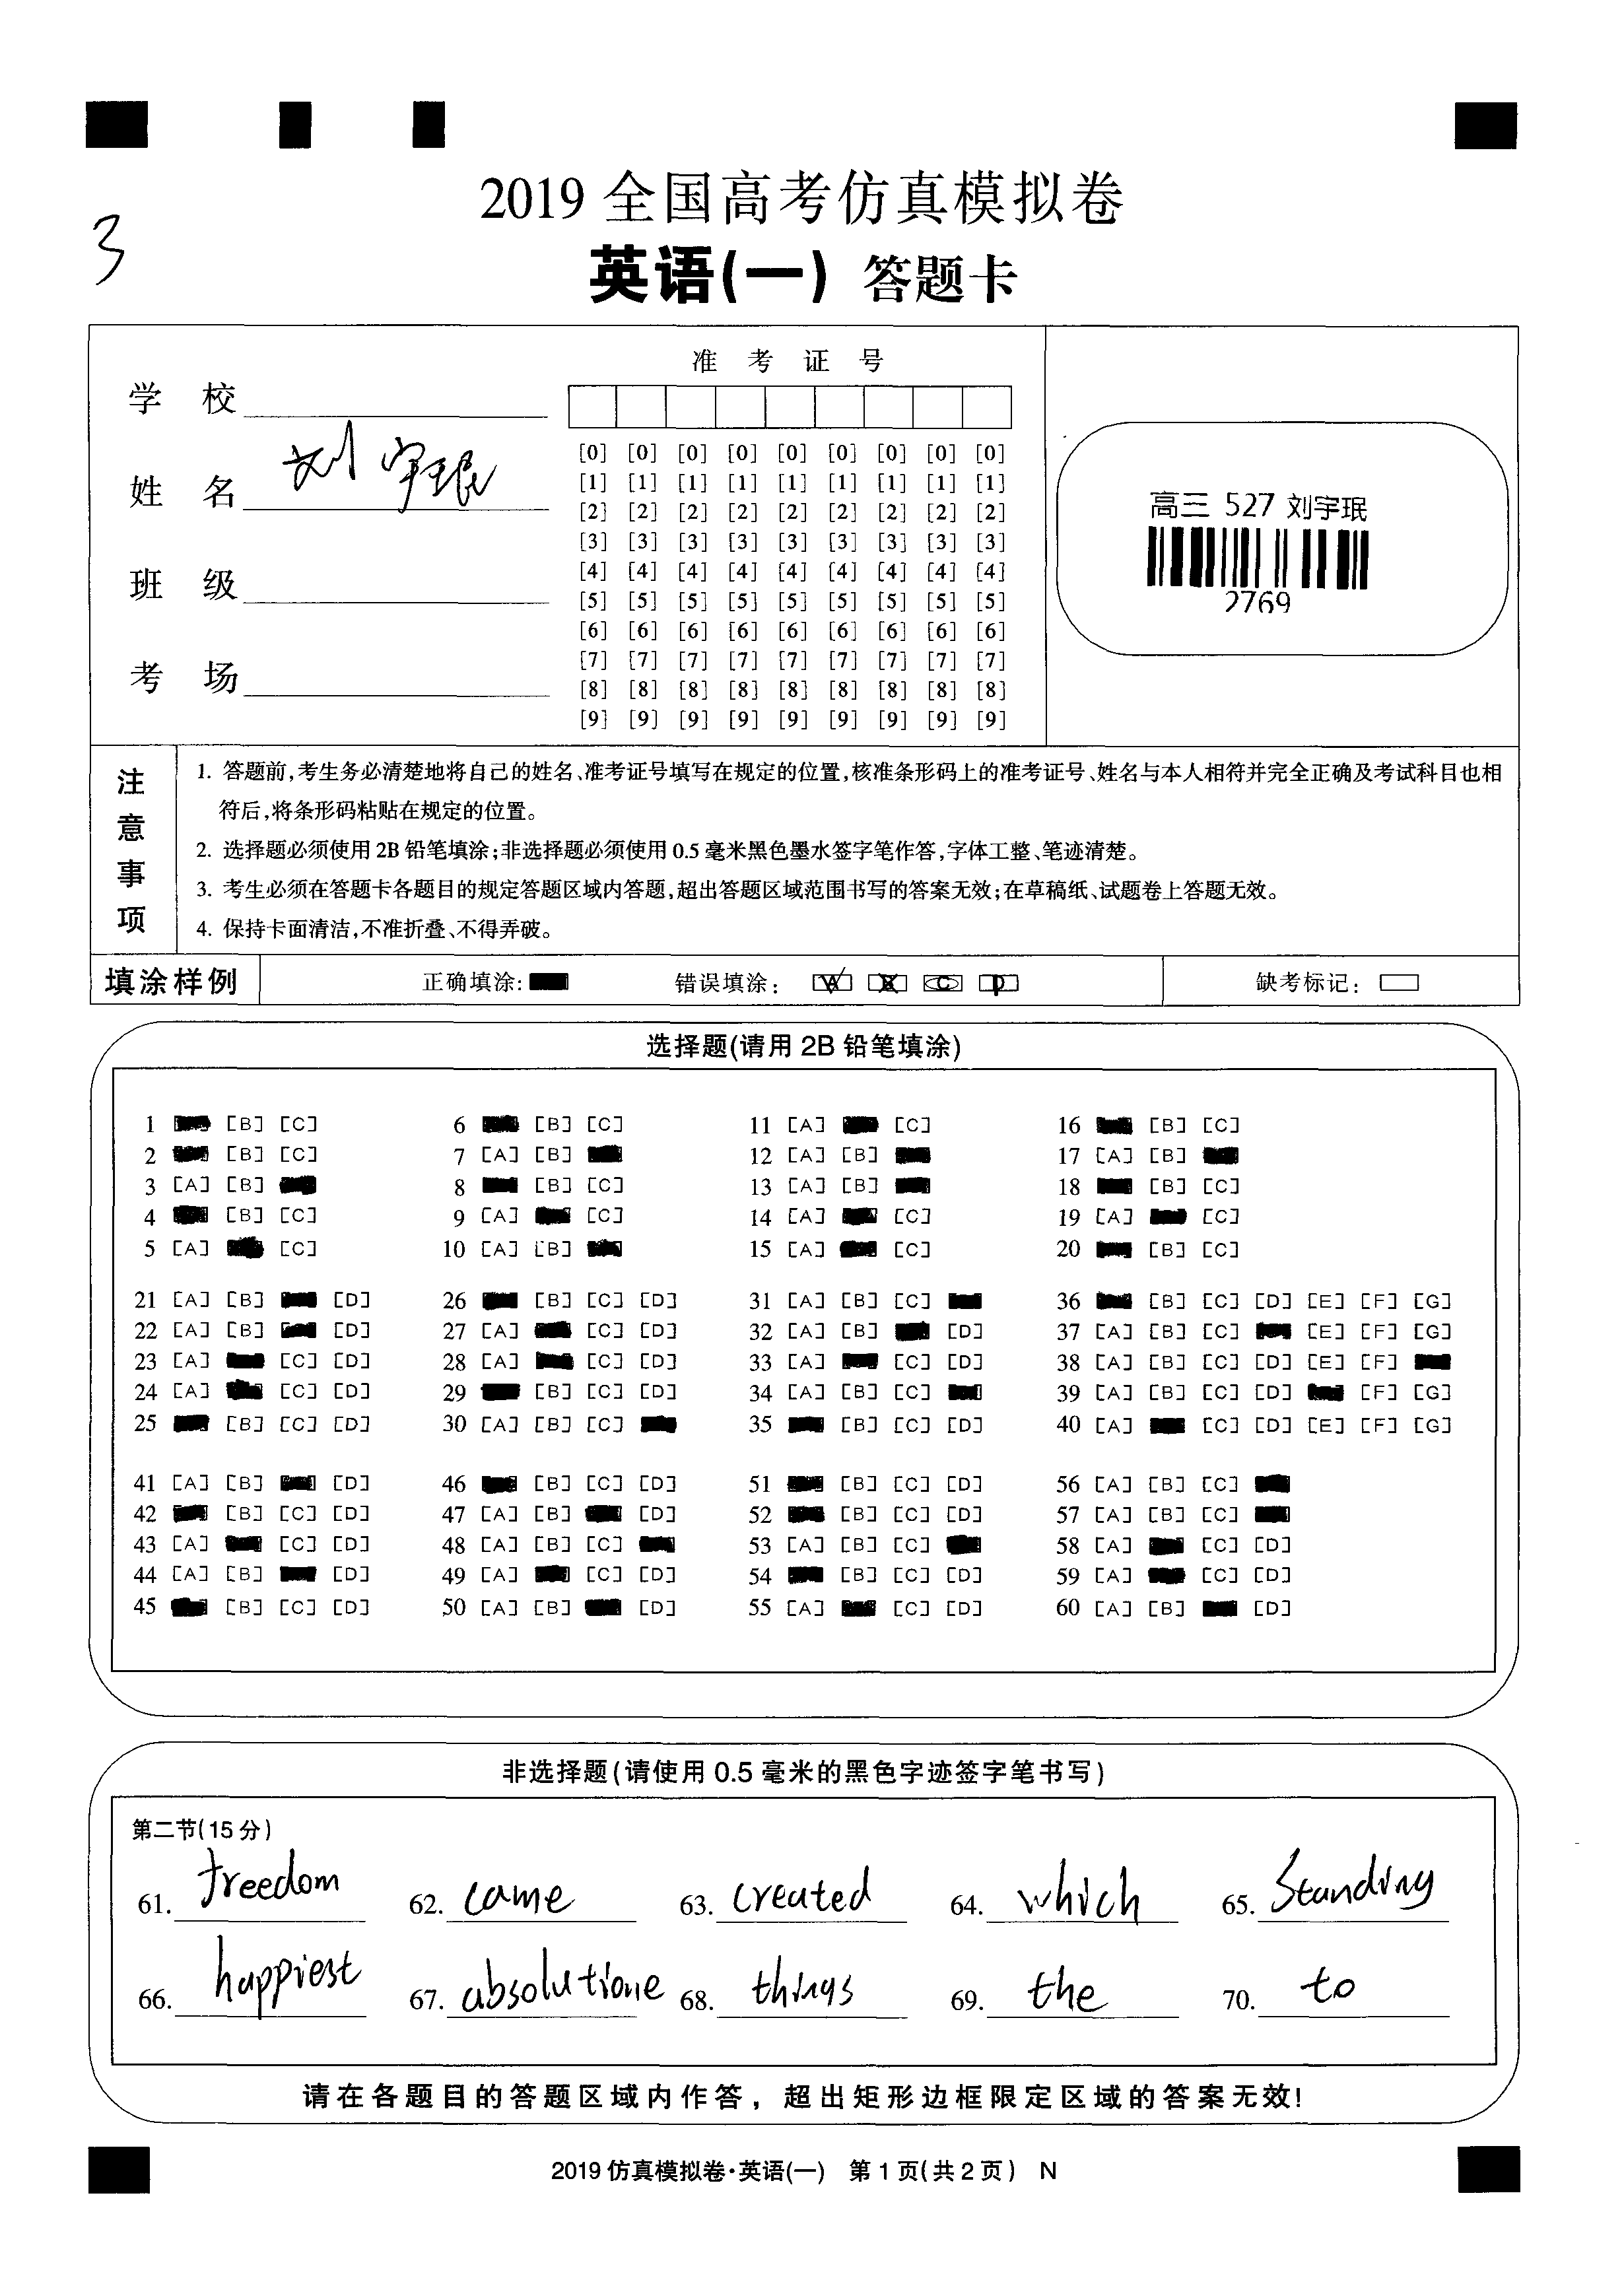 2019 全国高考仿真模拟卷
3
英语(一) 答题卡
准 考 证 号
学 校
姓 名 刘宇珉
班 级
考 场
[0] [0] [0] [0] [0] [0] [0] [0] [0]
[1] [1] [1] [1] [1] [1] [1] [1] [1]
[2] [2] [2] [2] [2] [2] [2] [2] [2]
[3] [3] [3] [3] [3] [3] [3] [3] [3]
[4] [4] [4] [4] [4] [4] [4] [4] [4]
[5] [5] [5] [5] [5] [5] [5] [5] [5]
[6] [6] [6] [6] [6] [6] [6] [6] [6]
[7] [7] [7] [7] [7] [7] [7] [7] [7]
[8] [8] [8] [8] [8] [8] [8] [8] [8]
[9] [9] [9] [9] [9] [9] [9] [9] [9]
高三 527 刘宇珉
2769
注意事项
1. 答题前,考生务必清楚地将自己的姓名、准考证号填写在规定的位置,核准条形码上的准考证号、姓名与本人相符并完全正确及考试科目也相
符后,将条形码粘贴在规定的位置。
2. 选择题必须使用 2B 铅笔填涂;非选择题必须使用 0.5 毫米黑色墨水签字笔作答,字体工整、笔迹清楚。
3. 考生必须在答题卡各题目的规定答题区域内答题,超出答题区域范围书写的答案无效;在草稿纸、试题卷上答题无效。
4. 保持卡面清洁,不准折叠、不得弄破。
填涂样例 正确填涂: 错误填涂: [A] [B] [C] [D] 缺考标记:
选择题(请用 2B 铅笔填涂)
1 [B] [C] 6 [B] [C] 11 [A] [C] 16 [B] [C]
2 [B] [C] 7 [A] [B] 12 [A] [B] 17 [A] [B]
3 [A] [B] 8 [B] [C] 13 [A] [B] 18 [B] [C]
4 [B] [C] 9 [A] [C] 14 [A] [C] 19 [A] [C]
5 [A] [C] 10 [A] [B] 15 [A] [C] 20 [B] [C]
21 [A] [B] [D] 26 [B] [C] [D] 31 [A] [B] [C] 36 [B] [C] [D] [E] [F] [G]
22 [A] [B] [D] 27 [A] [C] [D] 32 [A] [B] [D] 37 [A] [B] [C] [E] [F] [G]
23 [A] [C] [D] 28 [A] [C] [D] 33 [A] [C] [D] 38 [A] [B] [C] [D] [E] [F]
24 [A] [C] [D] 29 [B] [C] [D] 34 [A] [B] [C] 39 [A] [B] [C] [D] [F] [G]
25 [B] [C] [D] 30 [A] [B] [C] 35 [B] [C] [D] 40 [A] [C] [D] [E] [F] [G]
41 [A] [B] [D] 46 [B] [C] [D] 51 [B] [C] [D] 56 [A] [B] [C]
42 [B] [C] [D] 47 [A] [B] [D] 52 [B] [C] [D] 57 [A] [B] [C]
43 [A] [C] [D] 48 [A] [B] [C] 53 [A] [B] [C] 58 [A] [C] [D]
44 [A] [B] [D] 49 [A] [C] [D] 54 [B] [C] [D] 59 [A] [C] [D]
45 [B] [C] [D] 50 [A] [B] [D] 55 [A] [C] [D] 60 [A] [B] [D]
非选择题(请使用 0.5 毫米的黑色字迹签字笔书写)
第二节(15 分)
61. freedom 62. came 63. created 64. which 65. Standing
66. happiest 67. absolutione 68. things 69. the 70. to
请在各题目的答题区域内作答，超出矩形边框限定区域的答案无效!
2019 仿真模拟卷·英语(一) 第 1 页(共 2 页) N